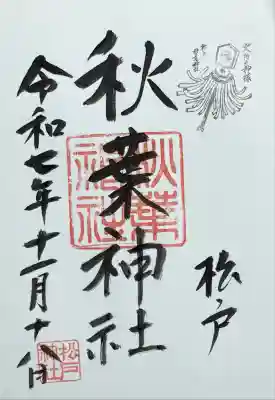 松戸
秋葉神社
令和七年十一月十八日
秋葉
神社
松戸
神社